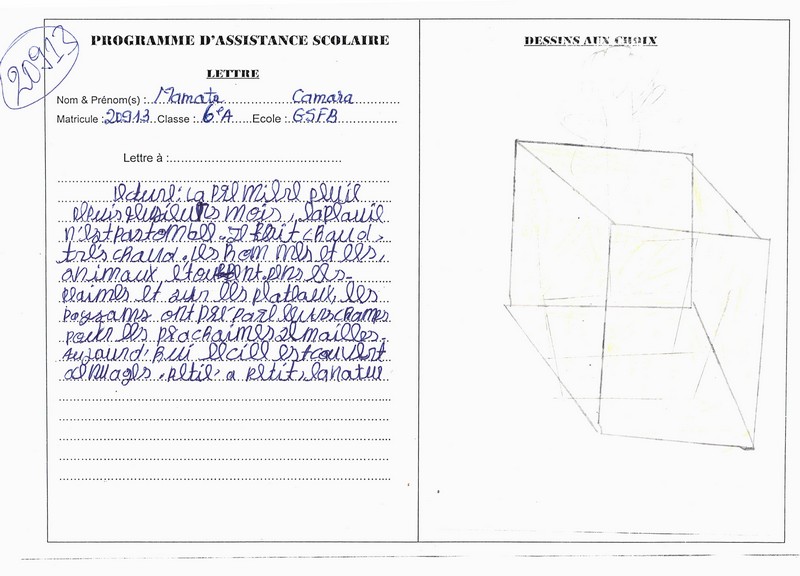 20913
PROGRAMME D'ASSISTANCE SCOLAIRE
LETTRE
Nom & Prénom(s) : Mamata Camara
Matricule : 20913 Classe : 6e A Ecole : GSFB
Lettre à :
la pre mière pluie
mois, la pluie
n'est pas tombe. Il fait chaud,
très chaud. les hommes et les,
animaux
et sur les plateaux, les
paysans ont pré paré leurs champs
pour les prochaines
Aujourd'hui le ciel est couvert
petit à petit, la natur
DESSINS AUX CHOIX